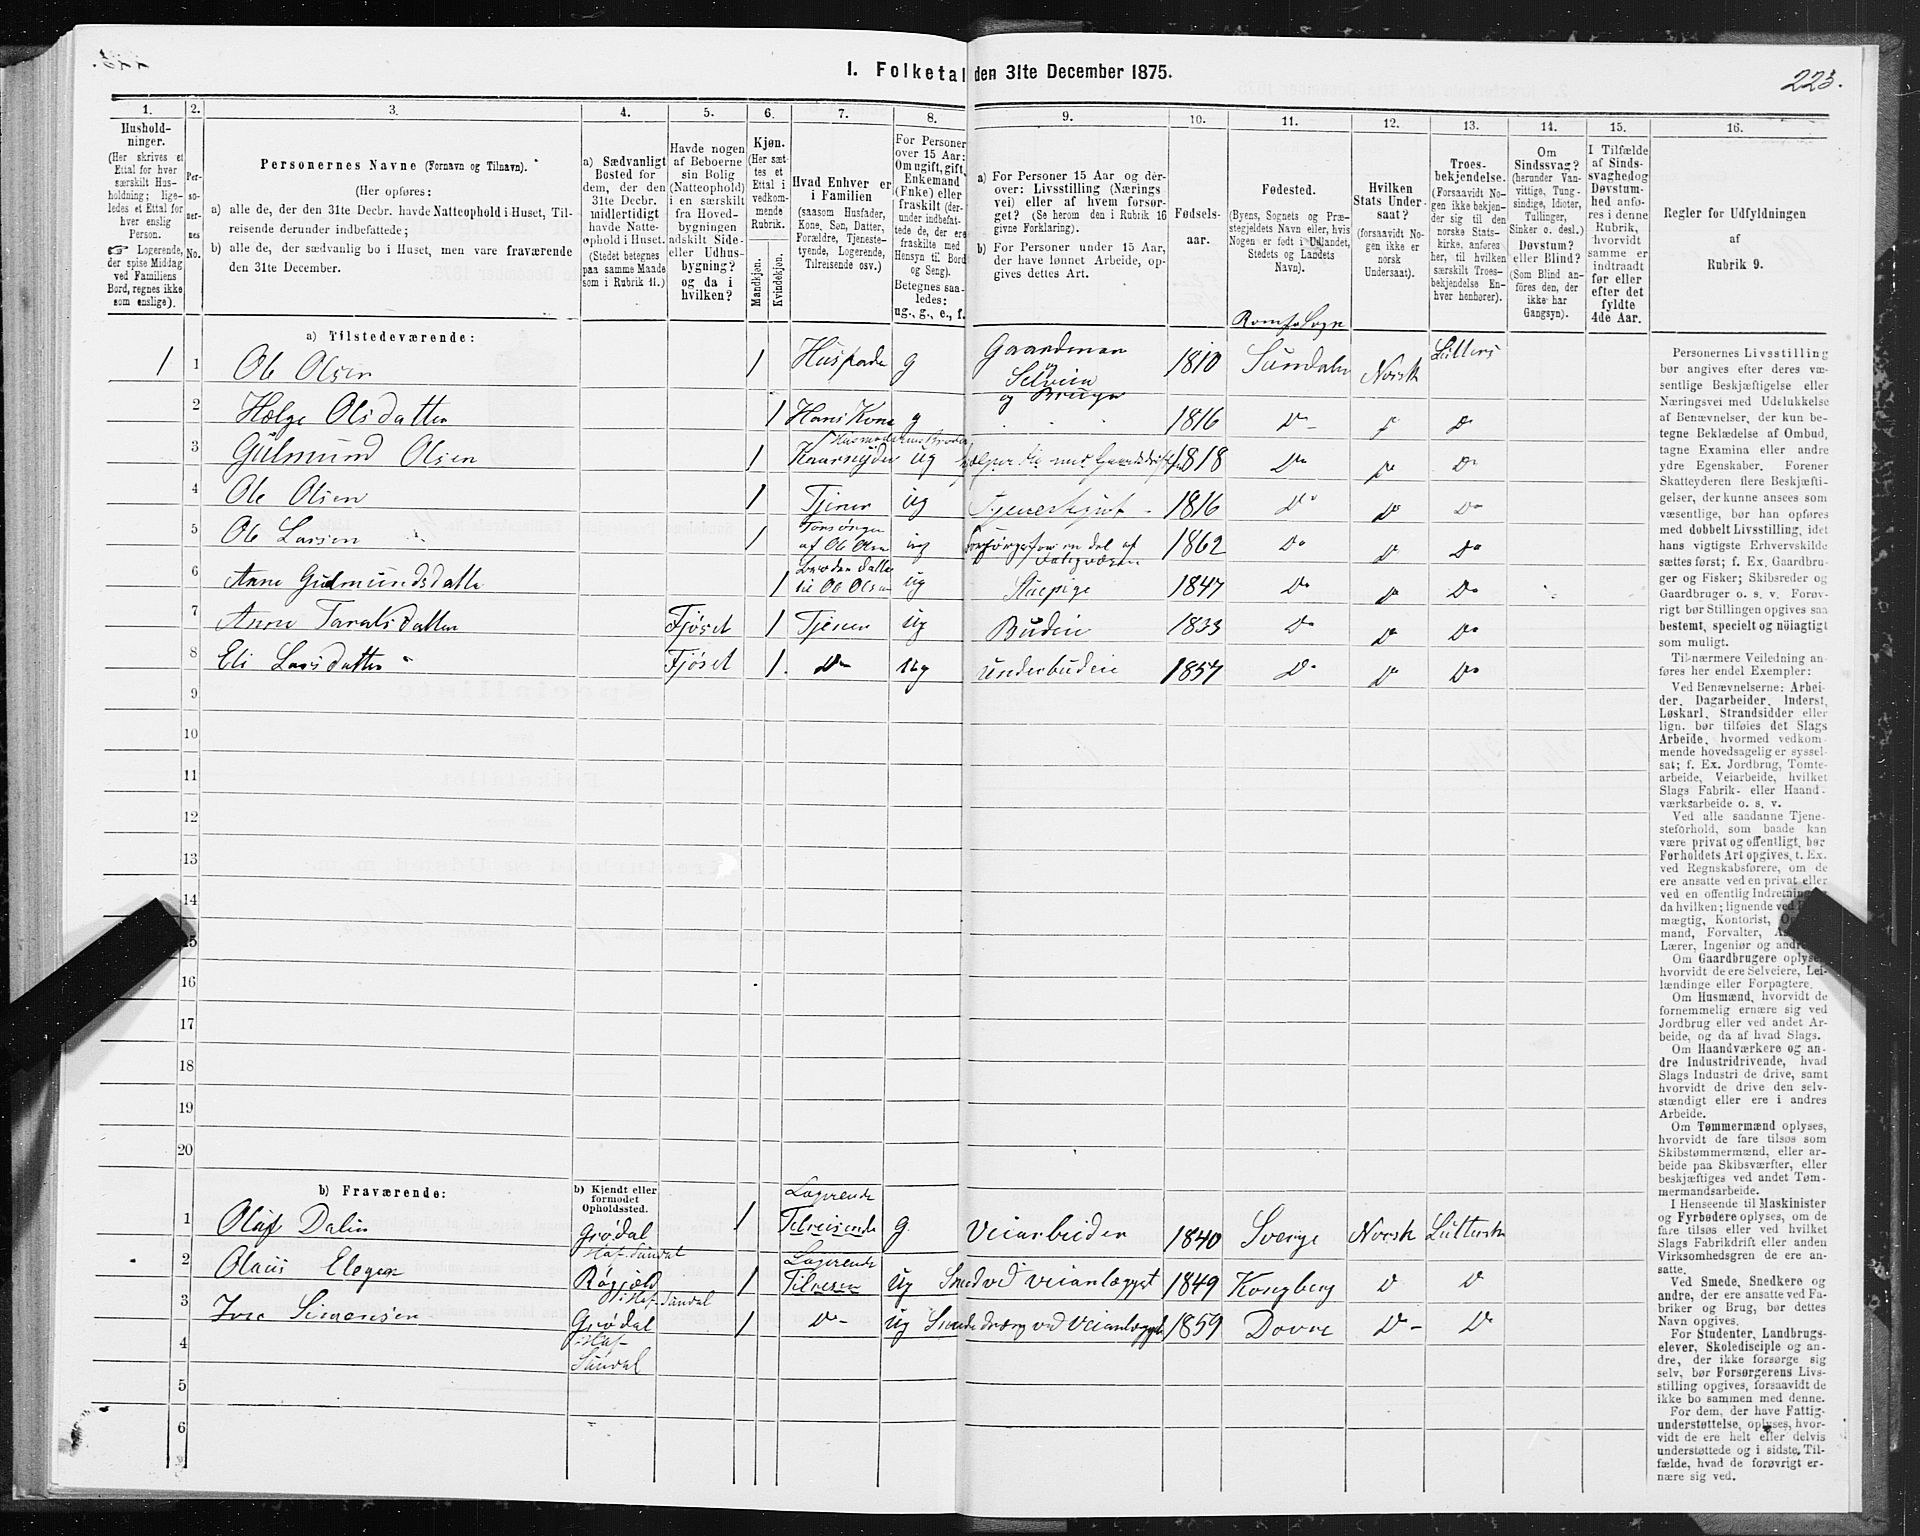 I. Folketal den 31te December 1875.
223.
1.
2.
3.
4.
5.
6.
7.
8.
9.
10.
11.
12.
13.
14.
15.
16.
Hushold-
ninger.
(Her skrives et
Ettal for hver
særskilt Hus-
holdning; lige-
ledes et Ettal for
hver enslig
Person.
☞ Logerende,
der spise Middag
ved Familiens
Bord, regnes ikke
som enslige).
Per-
so-
ner-
nes
No.
Personernes Navne (Fornavn og Tilnavn).
(Her opføres:
a) alle de, der den 31te Decbr. havde Natteophold i Huset, Til-
reisende derunder indbefattede;
b) alle de, der sædvanlig bo i Huset, men vare fraværende
den 31te December.
a) Sædvanligt
Bosted for
dem, der den
31te Decbr.
midlertidigt
havde Natte-
ophold i Huset.
(Stedet betegnes
paa samme Maade
som i Rubrik 11.)
Havde nogen
af Beboerne
sin Bolig
(Natteophold)
i en særskilt
fra Hoved-
bygningen
adskilt Side-
eller Udhus-
bygning?
og da i
hvilken?
Kjøn.
(Her sæt-
tes et
Ettal i
vedkom-
mende
Rubrik.
Mandkjøn.
Kvindekjøn.
Hvad Enhver er
i Familien
(saasom Husfader,
Kone, Søn, Datter,
Forældre, Tjeneste-
tyende, Logerende,
Tilreisende osv.)
For Personer
over 15 Aar:
Om ugift, gift,
Enkemand
(Fnke) eller
fraskilt (der-
under indbefat-
tede de, der ere
fraskilte med
Hensyn til Bord
og Seng).
Betegnes saa-
ledes:
ug., g., e., f.
a) For Personer 15 Aar og der-
over: Livsstilling (Nærings
vei) eller af hvem forsør-
get? (Se herom den i Rubrik 16
givne Forklaring).
b) For Personer under 15 Aar,
der have lønnet Arbeide, op-
gives dettes Art.
Fødsels-
aar.
Fødested.
(Byens, Sognets og Præ-
stegjeldets Navn eller, hvis
Nogen er født i Udlandet,
Stedets og Landets
Navn).
Hvilken
Stats Under-
saat?
(forsaavidt No-
gen ikke er
norsk
Undersaat).
Troes-
bekjendelse.
(Forsaavidt No-
gen ikke bekjen-
der sig til den
norske Stats-
kirke, anføres
her, til hvilken
særskilt Troes-
bekjendelse En-
hver henhører).
Om
Sindssvag?
(herunder Van-
vittige, Tung-
sindige, Idioter,
Tullinger,
Sinker o. desl.)
Døvstum?
eller Blind?
(Som Blind an-
føres den, der
ikke har
Gangsyn).
I Tilfælde
af Sinds-
svaghed og
Døvstum-
hed anfø-
res i denne
Rubrik,
hvorvidt
samme er
indtraadt
før eller
efter det
fyldte
4de Aar.
Regler for Udfyldningen
af
Rubrik 9.
a) Tilstedeværende:
Romfo Sogn
1 1 Ole Olsen 1 Husfader g Gaardman Selveier og Bruger 1810 Sundalen Norsk Luttersk
2 Hælge Olsdatter 1 Hans Kone g 1816 Do Do Do
3 Gulmund Olsen 1 ug 1818 Do Do Do
4 Ole Olsen 1 Tjener ug 1816 Do Do Do
5 Ole Larsen 1 Forsørges af Ole Olsen ug Forsørges for en del af 1862 Do Do Do
6 Anne Gulmundsdatter 1 Broderdatter til Ole Olsen ug Stuepige 1847 Do Do Do
7 Anne Taralsdatter Fjøset 1 Tjener ug Budeie 1833 Do Do Do
8 Eli Larsdatter Fjøset 1 Do ug underbudeie 1857 Do Do Do
9
10
11
12
13
14
15
16
17
18
19
20
b) Fraværende:
b) Kjendt eller
formodet
Opholdssted.
1 Oluf Dalin Grødal i Haf-Sundal 1 Logerende Tilreisende g Veiarbeider 1840 Sverige Norsk Luttersk
2 Olaus Elogen Røgjold i Haf-Sundal 1 Logerende Tilreisen ug Smed ved veianlægget 1849 Kongberg D D
3 Iver Simensen Grødal i Haf-Sundal 1 Do ug Smededreng ved Veianlægget 1859 Dovre D- D
4
5
6
Personernes Livsstilling
bør angives efter deres væ-
sentlige Beskjæftigelse eller
Næringsvei med Udelukkelse
af Benævnelser, der kun be-
tegne Beklædelse af Ombud,
tagne Examina eller andre
ydre Egenskaber. Forener
Skatteyderen flere Beskjæfti-
gelser, der kunne ansees som
væsentlige, bør han opføres
med dobbelt Livsstilling, idet
hans vigtigste Erhvervskilde
sættes først; f. Ex. Gaardbru-
ger og Fisker; Skibsreder og
Gaardbruger o. s. v. Forøv-
rigt bør Stillingen opgives saa
bestemt, specielt og nöiagtigt
som muligt.
Til nærmere Veiledning an-
føres her endel Exempler:
Ved Benævnelserne: Arbei-
der, Dagarbeider, Inderst,
Løskarl, Strandsidder eller
lign. bør tilføies det Slags
Arbeide, hvormed vedkom-
mende hovedsagelig er syssel-
sat; f. Ex. Jordbrug, Tomte-
arbeide, Veiarbeide, hvilket
Slags Fabrik- eller Haand-
værksarbeide o. s. v.
Ved alle saadanne Tjene-
steforhold, som baade kan
være privat og offentligt, bør
Forholdets Art opgives, t. Ex.
ved Regnskabsførere, om de
ere ansatte ved en privat eller
ved en offentlig Indretning og
da hvilken; lignende ved
mægtig, Kontorist,
mand, Forvalter,
Lærer, Ingeniør og andre.
Om Gaardbrugere oplyses,
hvorvidt de ere Selveiere, Lei-
lændinge eller Forpagtere.
Om Husmænd, hvorvidt de
fornemmelig ernære sig ved
Jordbrug eller ved andet Ar-
beide, og da af hvad Slags.
Om Haandværkere og an-
dre Industridrivende, hvad
Slags Industri de drive, samt
hvorvidt de drive den selv-
stændigt eller ere i andres
Arbeide.
Om Tømmermænd oplyses,
hvorvidt de fare tilsøs som
Skibstømmermænd, eller ar-
beide paa Skibsværfter, eller
beskjæftiges ved andet Tøm-
mermandsarbeide.
I Henseende til Maskinister
og Fyrbødere oplyses, om de
fare tilsøs eller ved hvilket
Slags Fabrikdrift eller anden
Virksomhedsgren de ere an-
satte.
Ved Smede, Snedkere og
andre, der ere ansatte ved Fa-
briker og Brug, bør dettes
Navn opgives.
For Studenter, Landbrugs-
elever, Skoledisciple og an-
dre, der ikke forsørge sig
selv, bør Forsørgerens Livs-
stilling opgives, forsaavidt de
ikke bo sammen med denne.
For dem, der have Fattig-
understøttelse, oplyses, hvor-
vidt de ere helt eller delvis
understøttede og i sidste Til-
fælde, hvad de forøvrigt er-
nære sig ved.